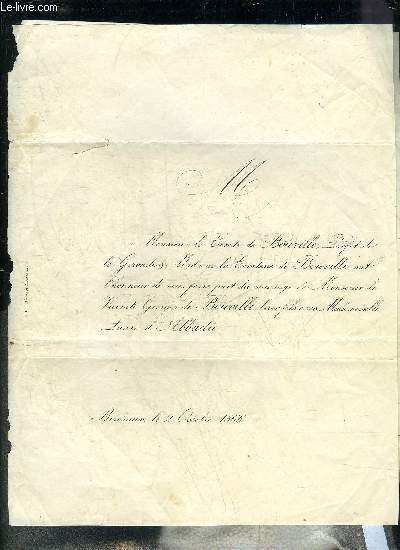 Le-Livre.com
M
Monsieur le Comte de Bouville, Préfet de
la Gironde & Madame la Comtesse de Bouville ont
l'honneur de vous faire part du mariage de Monsieur le
Vicomte Georges de Bouville leur fils avec Mademoiselle
d'Abbadie
Bordeaux, le 2 Octobre